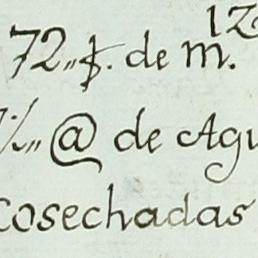 12
72,, $. de m.
@ de Agu
cosechadas